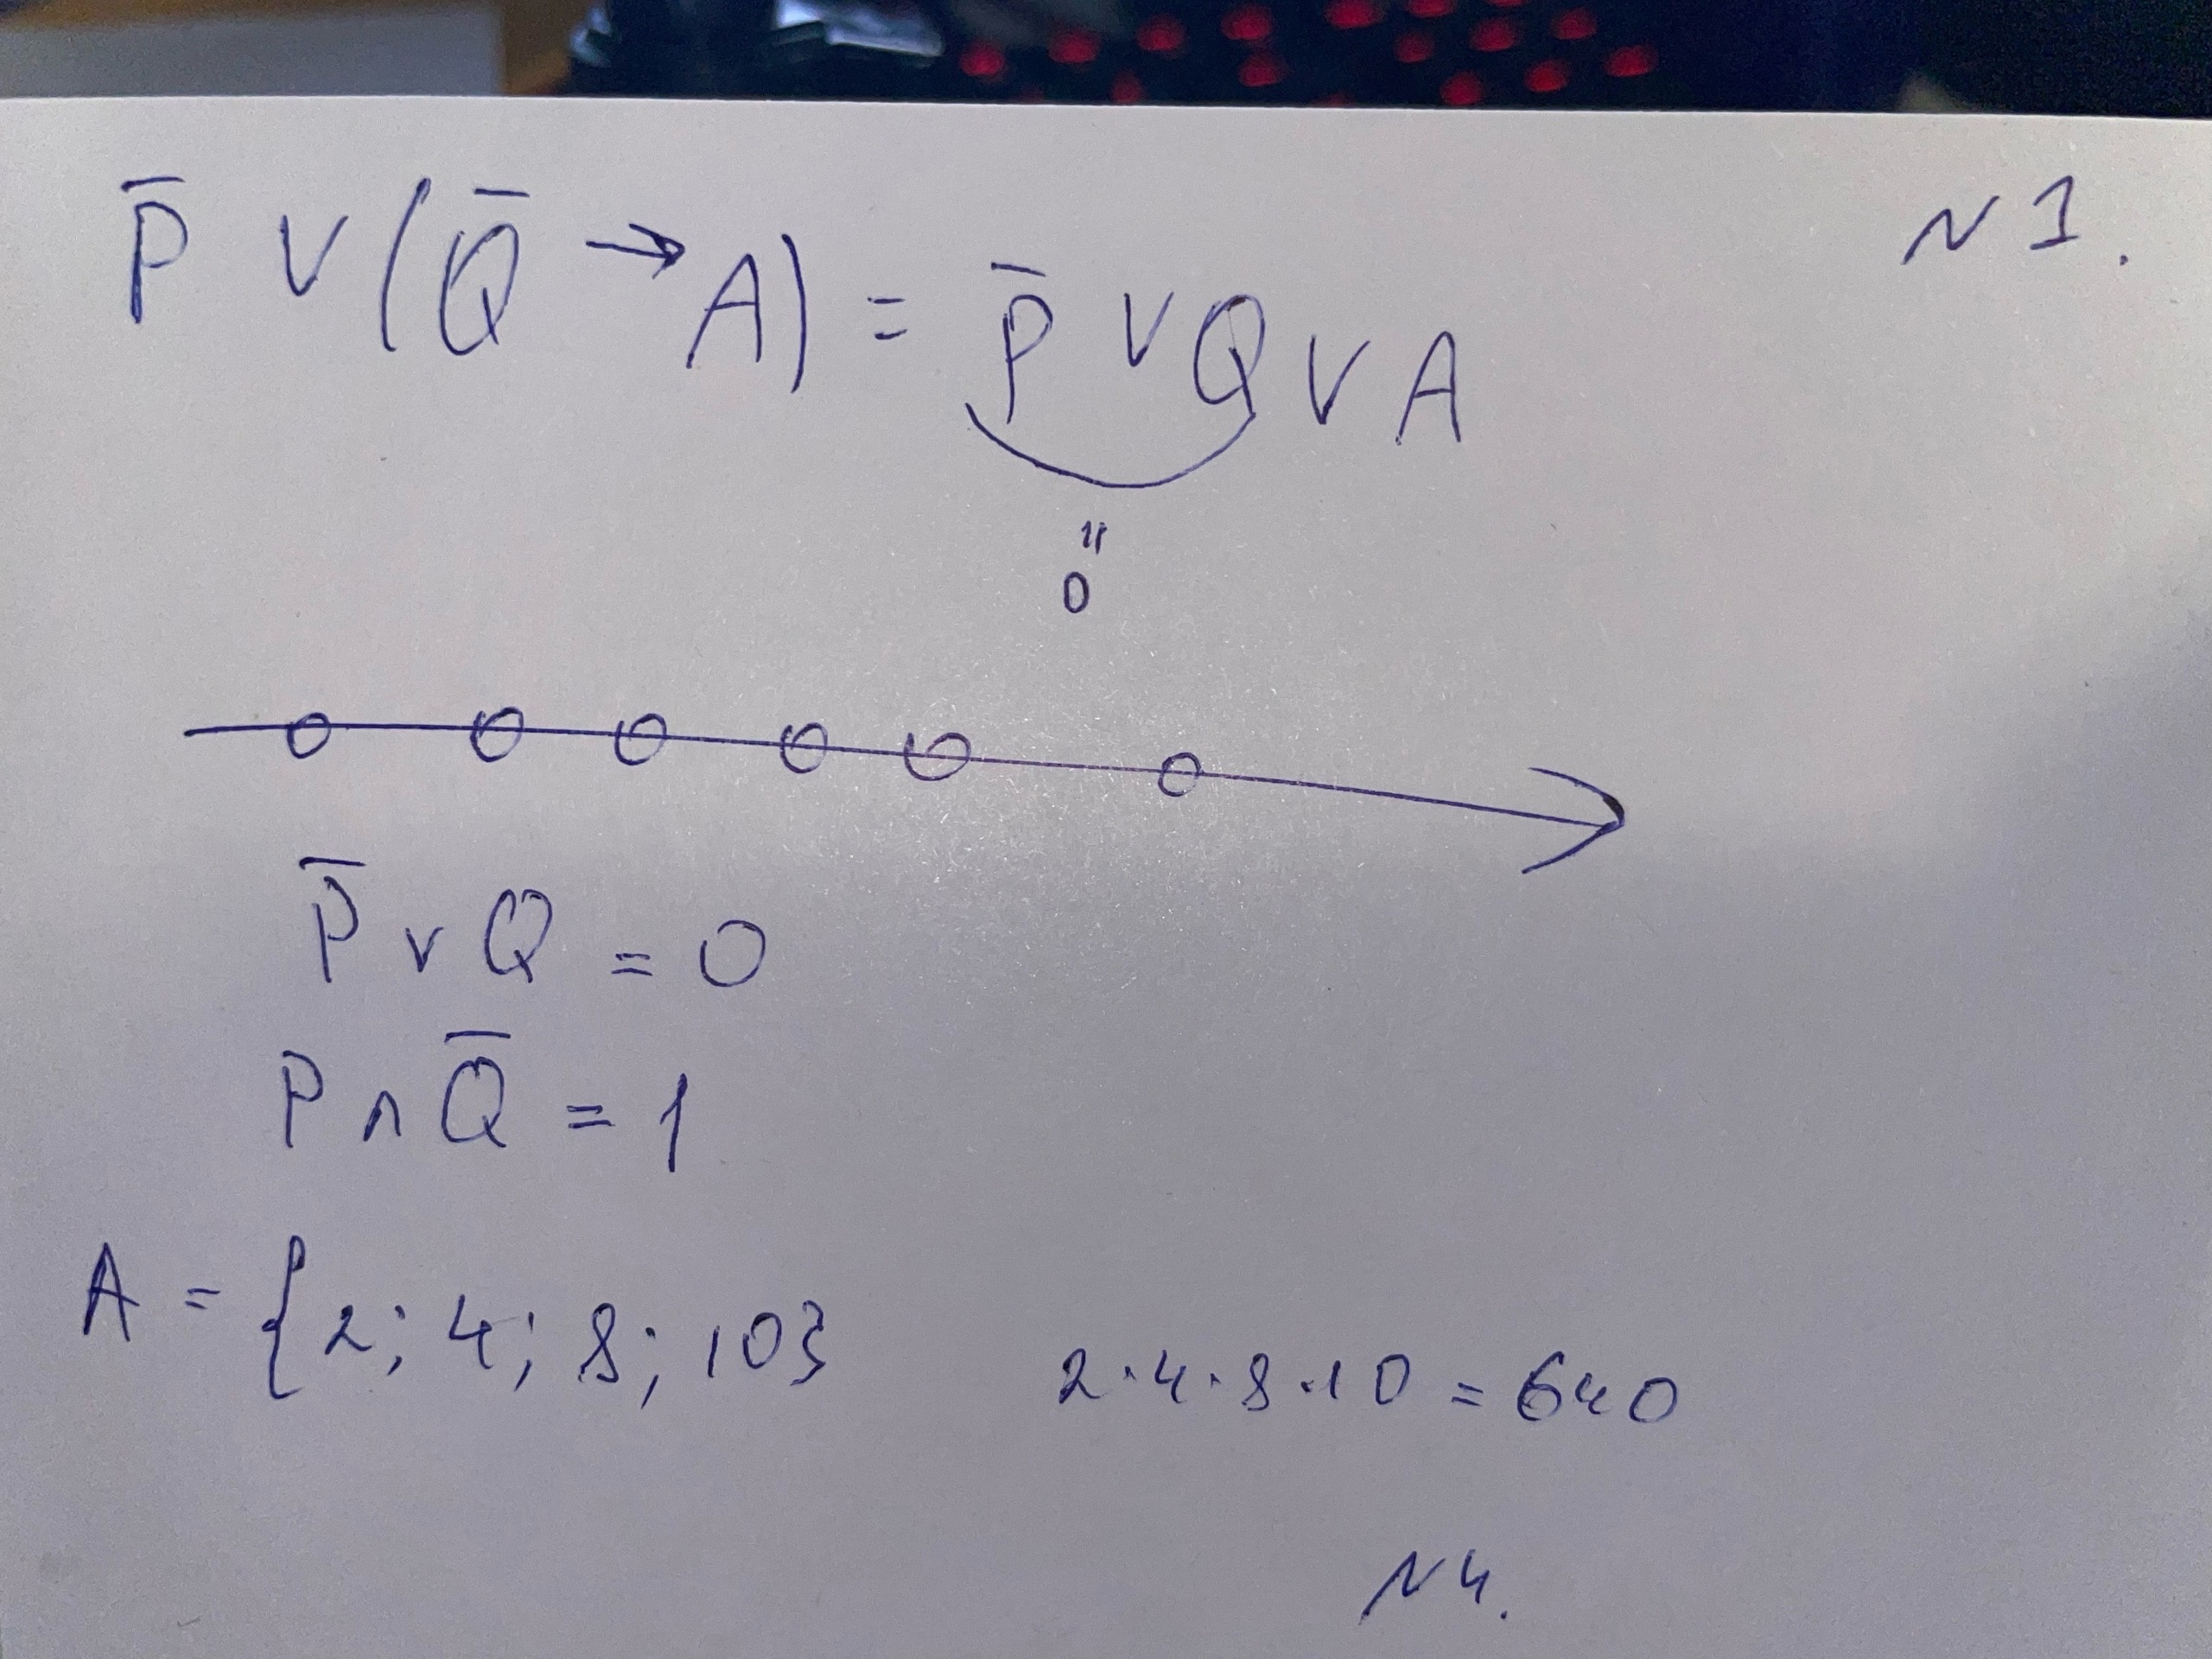 N 1.
P̅ ∨ (Q̅ → A) = P̅ ∨ Q ∨ A
"
0
P̅ ∨ Q = 0
P ∧ Q̅ = 1
A = {2; 4; 8; 10} 2·4·8·10 = 640
N 4.